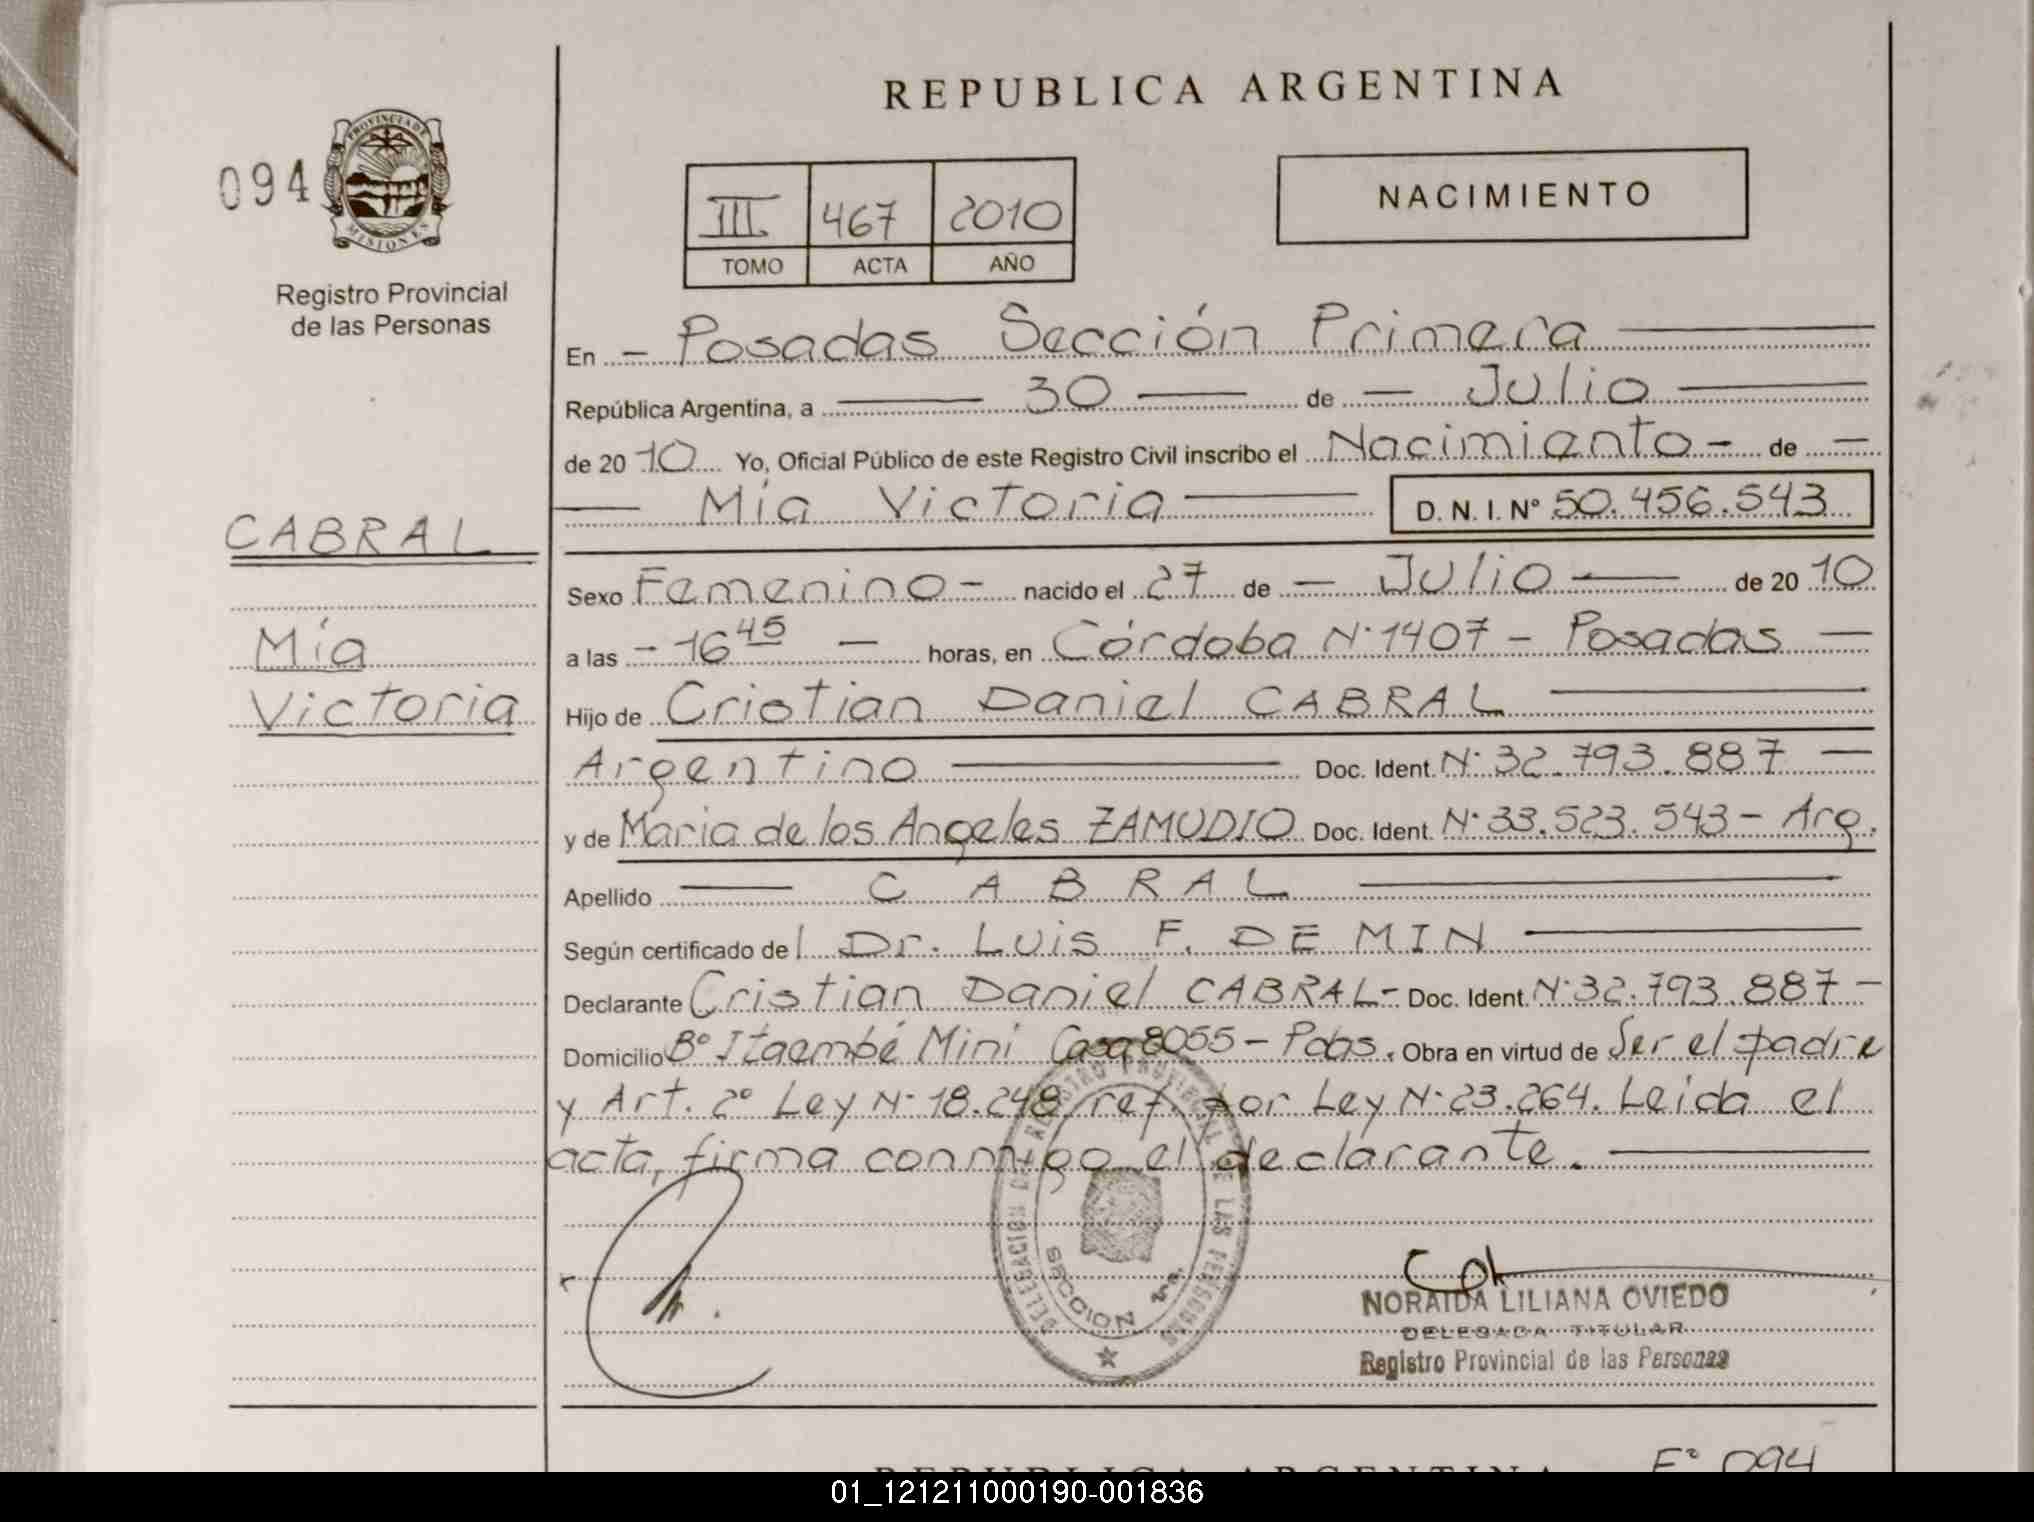 REPUBLICA ARGENTINA
094
PROVINCIA DE
MISIONES
Registro Provincial
de las Personas
III 467 2010
TOMO ACTA AÑO
NACIMIENTO
En - Posadas Sección Primera
República Argentina, a 30 de - Julio
de 2010 Yo, Oficial Público de este Registro Civil inscribo el Nacimiento - de -
Mía Victoria D. N. I. Nº 50.456.543
CABRAL
Mía
Victoria
Sexo Femenino - nacido el 27 de - Julio de 2010
a las - 16 45 - horas, en Córdoba Nº 1407 - Posadas -
Hijo de Cristian Daniel CABRAL
Argentino Doc. Ident. Nº 32.793.887 -
y de Maria de los Angeles ZAMUDIO Doc. Ident. Nº 33.523.543 - Arg.
Apellido C A B R A L
Según certificado del Dr. LUIS F. DE MIN
Declarante Cristian Daniel CABRAL - Doc. Ident. Nº 32.793.887 -
Domicilio Bº Itaembé Mini Casa 8055 - Pdas. Obra en virtud de Ser el padre
y Art. 2º Ley Nº 18.248 ref. por Ley Nº 23.264. Leida el
acta, firma conmigo el declarante.
DELEGACION DEL REGISTRO PROVINCIAL DE LAS PERSONAS
SECCION 1ra.
NORAIDA LILIANA OVIEDO
DELEGADA TITULAR
Registro Provincial de las Personas
REPUBLICA ARGENTINA
Fº 094
01_121211000190-001836